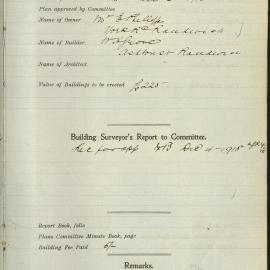 Plan approved by Committee
Name of Owner Mr E Phillips
York Rd Randwick
Name of Builder
Ashurst Randwick
Name of Architect
Value of Buildings to be erected £225
Building Surveyor's Report to Committee.
Rec for app Dec 4-1915
Report Book, folio
Plans Committee Minute Book, page
Building Fee Paid 6/-
Remarks.